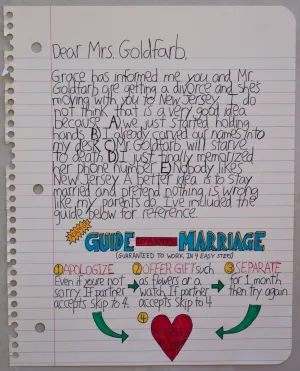 Dear Mrs. Goldfarb,
Grace has informed me you and Mr.
Goldfarb are getting a divorce and she's
moving with you to New Jersey. I do
not think that is a very good idea
because A) we just started holding
hands B) I already carved our names into
my desk C) Mr. Goldfarb will starve
to death D) I just finally memorized
her phone number E) Nobody likes
New Jersey. A better idea is to stay
married and pretend nothing is wrong
like my parents do. I've included the
guide below for reference.
GUIDE MARRIAGE
(GUARANTEED TO WORK IN 4 EASY STEPS)
1 APOLOGIZE
Even if you're not
sorry. If partner
accepts skip to 4.
2 OFFER GIFT such
as flowers or a
watch. If partner
accepts skip to 4
3 SEPARATE
for 1 month
then try again
4